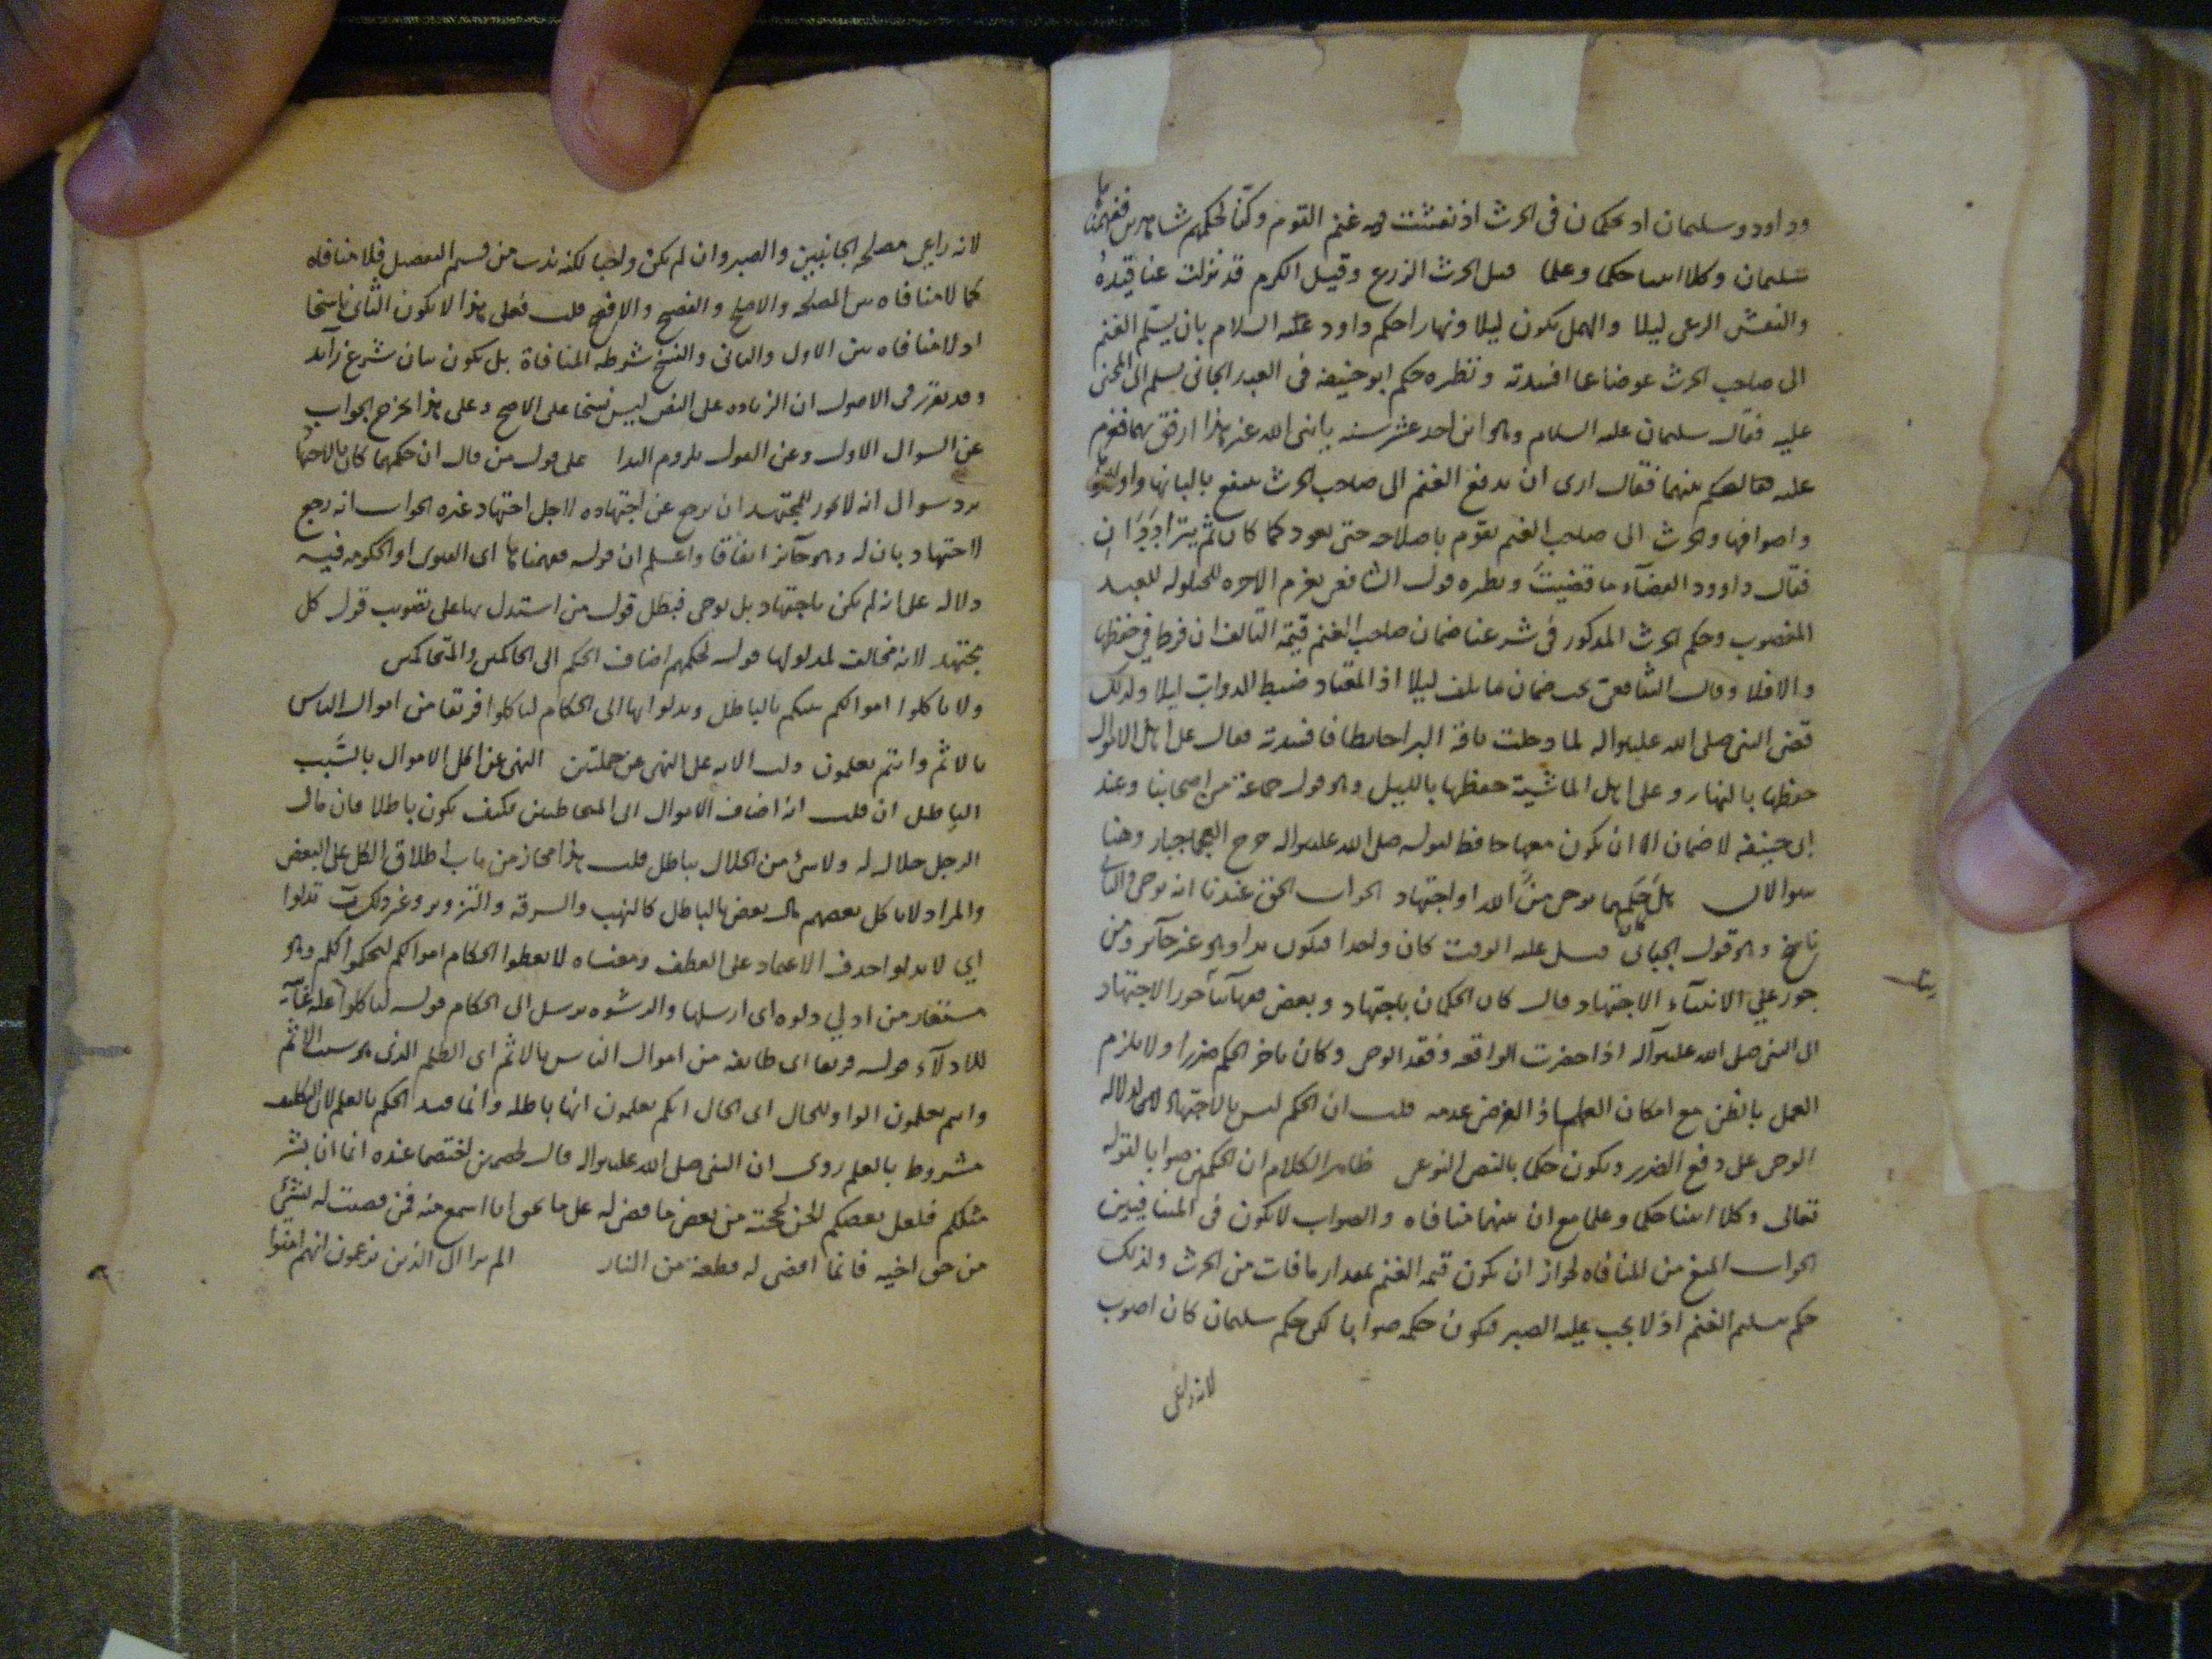 وداود وسليمان اذ يحكمان فى الحرث اذ نفشت فيه غنم القوم وكنا لحكمهم شاهدين ففهمناها
سليمان وكلا اتينا حكما وعلما قيل الحرث الزرع وقيل الكرم قد تدلت عناقيده
والنفش الرعى ليلا والهمل يكون ليلا ونهارا حكم داود عليه السلام بان يسلم الغنم
الى صاحب الحرث عوضا عما افسدته ونظيره حكم ابو حنيفة فى العبد الجانى يسلم الى المجنى
عليه فقال سليمان عليه السلام وهو ابن احد عشر سنه يا نبى الله غير هذا ارفق بهما فعزم
عليه فقال ارى ان يدفع الغنم الى صاحب الحرث ينتفع بالبانها واولادها
واصوافها والحرث الى صاحب الغنم يقوم باصلاحه حتى يعود كما كان ثم يترادان
فقال داوود القضاء ما قضيت ونظيره قول الشافعى يغرم الاجرة للحيلولة للعبد
المغصوب وحكم الحرث المذكور فى شرعنا ضمان صاحب الغنم قيمة التالف ان فرط فى حفظها
والا فلا وقال الشافعى يجب ضمان ما تلف ليلا اذ المعتاد ضبط الدواب ليلا ولذلك
قضى النبى صلى الله عليه واله لما دخلت ناقة البرا حايطا فافسدته فقال على اهل الاموال
حفظها بالنهار وعلى اهل الماشية حفظها بالليل وهو قول جماعة من اصحابنا وعند
ابى حنيفة لا ضمان الا ان يكون معها حافظ لقوله صلى الله عليه واله جرح العجما جبار وهنا
سوالان هل كان حكمهما بوحى من الله او اجتهاد الجواب الحق عندنا انه بوحى والثانى
ناسخ وهو قول الجبائى قيل عليه الوقت كان واحدا فيكون بدا وهو غير جائز ومن
جوز على الانبياء الاجتهاد قال كان الحكمان باجتهاد وبعض فقهائنا جوز الاجتهاد
الى النبى صلى الله عليه وآله اذا حضرت الواقعة وفقد الوحى وكان تاخر الحكم ضررا ولا يلزم
العمل بالظن مع امكان العلم اذ الغرض عدمه قلت ان الحكم ليس بالاجتهاد بل لدلالة
الوحى على دفع الضرر ويكون حكما بالنص النوعى ظاهر الكلام ان الحكمين صوابا لقوله
تعالى وكلا اتينا حكما وعلما مع ان بينهما منافاه والصواب لا يكون فى المتنافيين
الجواب المنع من المنافاه لجواز ان يكون قيمة الغنم بمقدار ما فات من الحرث ولذلك
حكم بتسليم الغنم اذ لا يجب عليه الصبر فيكون حكمه صوابا لكن حكم سليمان كان اصوب
لانه راعى
لانه راعى مصلحة الجانبين والصبر وان لم يكن واجبا لكنه ندب من قسم التفضيل فلا منافاه
كما لا منافاه بين المصلحة والاصلح والفصيح والافصح قلت فعلى هذا لا يكون الثانى ناسخا
اذ لا منافاه بين الاول والثانى والنسخ شرطه المنافاة بل يكون بيان شرع زائد
وقد تقرر فى الاصول ان الزيادة على النص ليس نسخا على الاصح وعلى هذا يخرج الجواب
عن السوال الاول وعن القول بلزوم البدا على قول من قال ان حكمهما كان بالاجتهاد
يرد سوال انه لا يجوز للمجتهد ان يرجع عن اجتهاده لاجل اجتهاد غيره الجواب انه رجع
لاجتهاد بان له وهو جائز اتفاقا واعلم ان قوله ففهمناها اى الفتوى او الحكومه فيه
دلاله على انه لم يكن باجتهاد بل بوحى فبطل قول من استدل بها على تصويب قول كل
مجتهد لانه مخالف لمدلولها قوله لحكمهم اضاف الحكم الى الحاكمين والمتحاكمين
ولا تاكلوا اموالكم بينكم بالباطل وتدلوا بها الى الحكام لتاكلوا فريقا من اموال الناس
بالاثم وانتم تعلمون دلت الايه على النهى عن جملتين النهى عن اكل الاموال بالسبب
الباطل ان قلت انه اضاف الاموال الى المخاطبين فكيف يكون باطلا فان مال
الرجل حلال له ولا شئ من الحلال بباطل قلت هذا مجاز من باب اطلاق الكل على البعض
والمراد لا ياكل بعضهم مال بعض بالباطل كالنهب والسرقه والتزوير وغير ذلك تدلوا
اي لا تدلوا حذف لا اعتمادا على العطف ومعناه لا تعطوا الحكام اموالكم ليحكموا لكم وهو
مستعار من ادلى دلوه اى ارسلها والرشوه ترسل الى الحكام قوله لتاكلوا علة غائية
للادلاء قوله فريقا اى طايفه من اموال الناس بالاثم اى الظلم الذى هو سبب الاثم
وانتم تعلمون الواو للحال اى الحال انكم تعلمون انها باطله وانما قيد الحكم بالعلم لان التكليف
مشروط بالعلم روى ان النبى صلى الله عليه واله قال لخصمين اختصما عنده انما انا بشر
مثلكم فلعل بعضكم الحن بحجته من بعض فاقضى له على ما اسمع منه فمن قضيت له بشئ
من حق اخيه فانما اقضى له قطعة من النار الم تر الى الذين يزعمون انهم امنوا